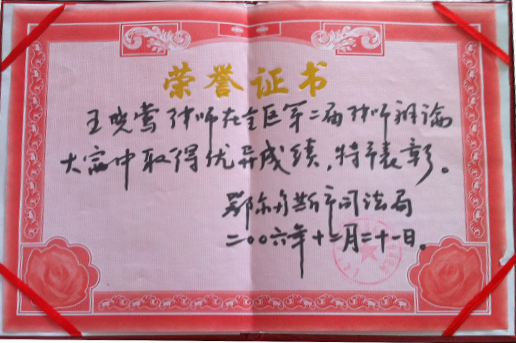 荣誉证书
王晓莺律师在全区第二届律师辩论
大赛中取得优异成绩，特予表彰。
鄂尔多斯市司法局
二〇〇六年十二月二十一日。